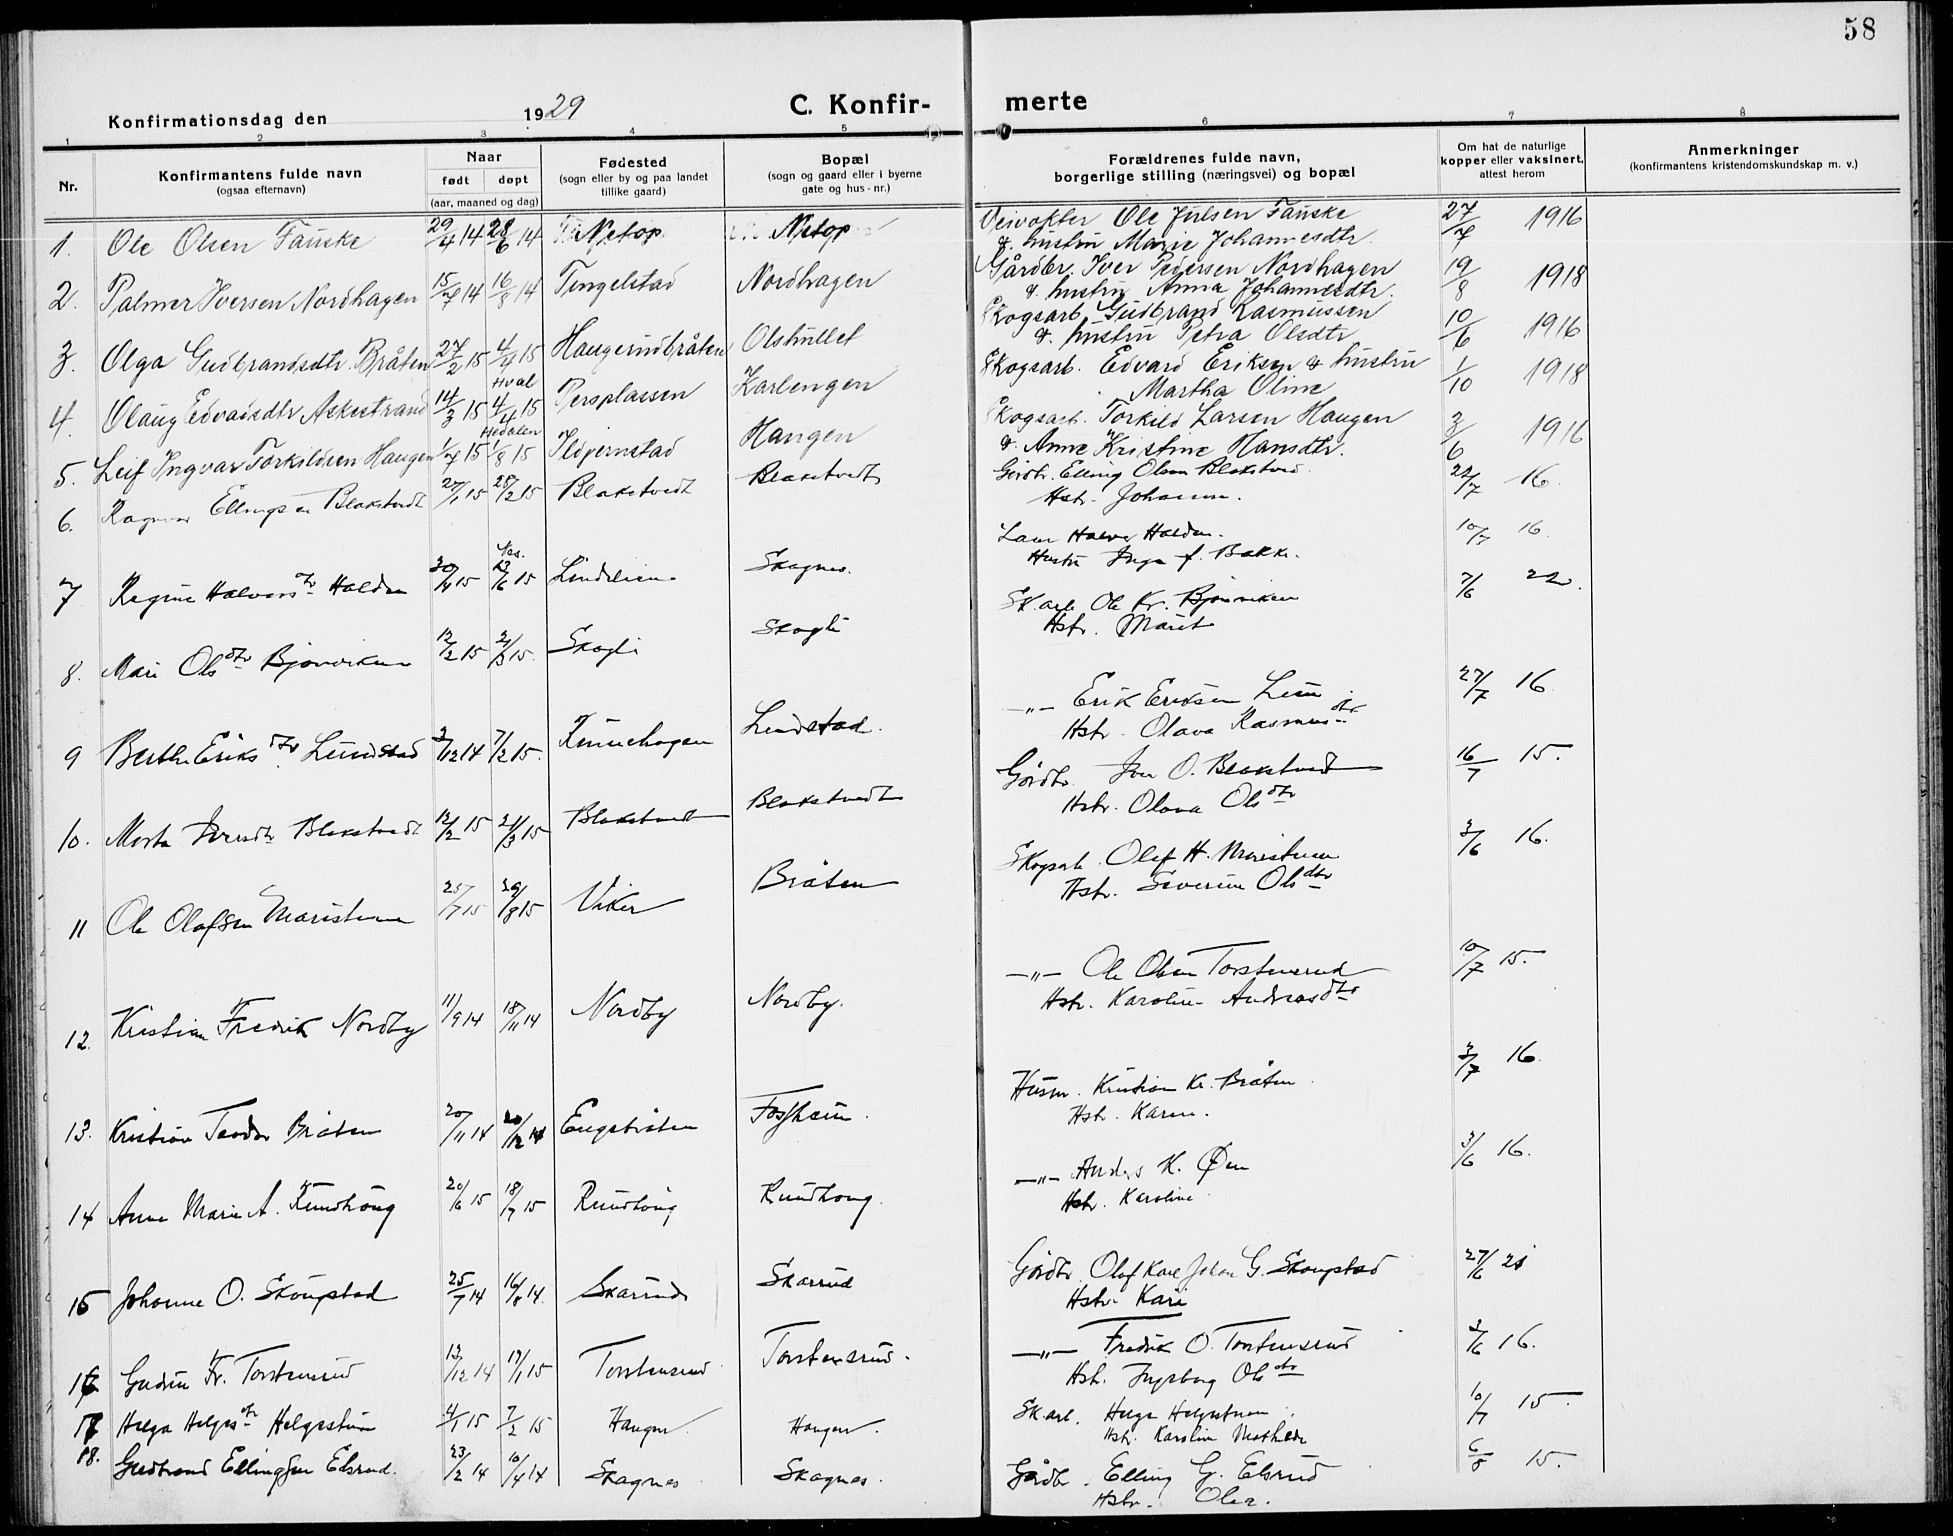 58
Konfirmationsdag den 1929 C. Konfir- merte
1 2 3 4 5 6 7 8
Nr. Konfirmantens fulde navn (ogsaa efternavn) Naar født døpt (aar, maaned og dag) Fødested (sogn eller by og paa landet tillike gaard) Bopæl (sogn og gaard eller i byerne gate og hus-nr.) Forældrenes fulde navn, borgerlige stilling (næringsvei) og bopæl Om hat de naturlige kopper eller vaksinert, attest herom Anmerkninger (konfirmantens kristendomskundskap m. v.)
1. Ole Olsen Fauske 29/4 14 28/6 14 Netop Netop Veivokter Ole Julsen Fauske 27/7 1916
& hustru Marie Johannesdtr.
2. Palmer Iversen Nordhagen 15/7 14 16/8 14 Tingelstad Nordhagen Gårdbr. Iver Pedersen Nordhagen 19/8 1918
& hustru Anna Johannesdtr.
3. Olga Gudbrandsdtr. Bråten 27/2 15 4/4 15 Haugerudbråten Olshullet Skogsarb. Gudbrand Rasmussen 10/6 1916
& hustru Petra Olsdtr
Hval
4. Olaug Edvardsdtr Askestrand 14/3 15 4/4 15 Persplassen Karlengen Skogsarb. Edvard Eriksen & hustru 1/10 1918
Martha Oline
Hedalen
5. Leif Ingvar Torkildsen Haugen 1/7 15 1/8 15 Ildjernstad Haugen Skogsarb. Torkild Larsen Haugen 3/6 1916
& Anne Kristine Hansdtr.
6. Ragnar Ellingsen Blakstvedt 27/1 15 28/2 15 Blakstvedt Blakstvedt Gårdbr. Elling Olsen Blakstved 22/7 16.
Hstr. Johanne.
Nes.
7 Regine Halvorsdtr Halden 30/4 15 13/6 15 Lindelien Skagnes. Halvor Halden. 10/7 16.
Hustru Inga f. Bakk.
8. Mari Olsdtr Bjørnviken 12/2 15 21/3 15. Skogli Skogli Sk.arb Ole Kr. Bjørnviken 7/6 22.
Hstr. Marit
9 Berthe Eriksdtr. Lundstad 3/12 14 7/2 15. Lundstad. —"— Erik Eriksen 27/7 16
Hstr. Olava Rasmusdtr
10. Marta Iversdtr Blakstvedt 12/2 15 21/3 15 Blakstvedt Blakstvedt Gårdbr. Iver O. Blakstvedt 16/7 15.
Hstr. Olava Olsdtr
11 Ole Olafsen Maristuen 25/7 15 29/8 15 Viker Bråten Skogsarb. Olaf H. Maristuen 3/6 16.
Hstr. Severine Olsdtr
12. Kristian Fredrik Nordby 11/9 14 18/11 14 Nordby Nordby. —"— Ole Olsen Torstensrud 10/7 15.
Hstr. Karoline Andreasdtr
13. Kristian Teodor Bråten 20/11 14 20/12 14 Engebråten Fossheim. Husm. Kristian Kr. Bråten 3/7 16.
Hstr. Karen.
14 Anne Marie A. Rundhaug 20/6 15 18/7 15 Rundhaug Rundhoug. —"— Anders K. Øen 3/6 16.
Hstr. Karoline
15 Johanne O. Skougstad 25/7 14 16/8 14. Skarrud Skarrud Gårdbr. Olaf Karl Johan G. Skougstad 27/6 21
Hstr. Kari
16 Gudrun Fr. Torstensrud 13/12 14 17/1 15 Torstensrud Torstensrud. —"— Fredrik O. Torstensrud 3/6 16.
Hstr. Ingeborg Olsdtr
17 Helga Helgesdtr Helgestuen 4/1 15 7/2 15 Haugen Haugen. Sk.arb. Helge Helgestuen 10/7 15
Hstr. Karoline Mathilde
18. Gudbrand Ellingsen Elsrud. 23/2 14 10/4 14 Skagnes Skagnes. Gårdbr. Elling G. Elsrud 6/8 15.
Hstr. Olea.